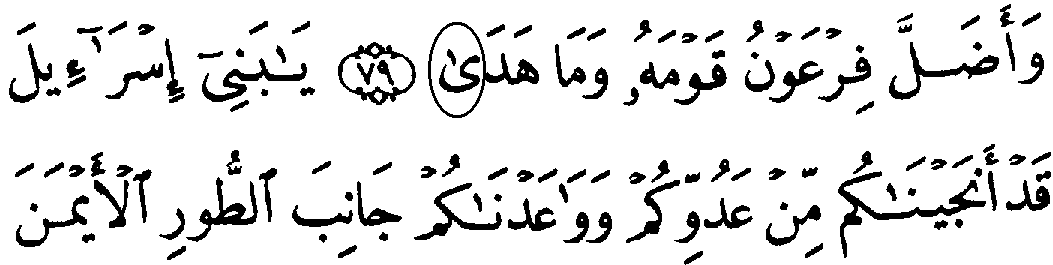 وَأَضَلَّ فِرْعَوْنُ قَوْمَهُۥ وَمَا هَدَىٰ ٧٩ يَـٰبَنِىٓ إِسْرَٰٓءِيلَ
قَدْ أَنجَيْنَـٰكُم مِّنْ عَدُوِّكُمْ وَوَٰعَدْنَـٰكُمْ جَانِبَ ٱلطُّورِ ٱلْأَيْمَنَ